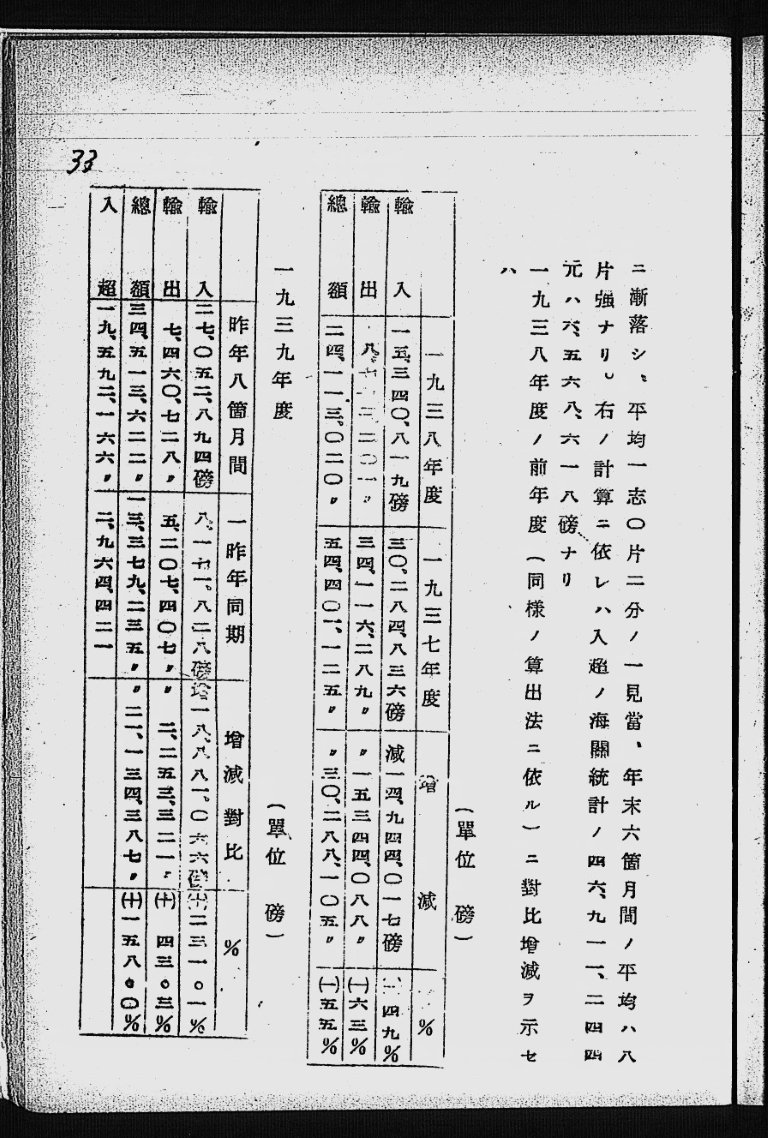 ニ漸落シ、平均一志〇片二分ノ一見當、年末六箇月間ノ平均ハ八
片强ナリ。右ノ計算ニ依レハ入超ノ海關統計ノ四六、九一一、二四四
元ハ六、五六八、六一八磅ナリ
一九三八年度ノ前年度(同樣ノ算出法ニ依ル)ニ對比增減ヲ示セ
ハ
(單位 磅)
一九三八年度 一九三七年度 增減 %
輸入 一五、三四〇、八一九磅 三〇、二八四、八三六磅 減一四、九四四、〇一七磅 (一)四九%
輸出 三四、一一六、二八九〃 〃一五、三四四、〇八八〃 (一)六三%
總額 二四、一一三、〇二〇〃 五四、四〇一、一二五〃 〃三〇、二八八、一〇五〃 (一)五五%
一九三九年度 (單位 磅)
昨年八箇月間 一昨年同期 增減對比 %
輸入 二七、〇五二、八九四磅 八、一七一、八二八磅 增一八、八八一、〇六六磅 (十)二三一。一%
輸出 七、四六〇、七二八〃 五、二〇七、四〇七〃 〃二、二五三、三二一〃 (十)四三。三%
總額 三四、五一三、六二二〃 一三、三七九、二三五〃 〃二一、一三四、三八七〃 (十)一五八。〇%
入超 一九、五九二、一六六〃 二、九六四、四二一
33